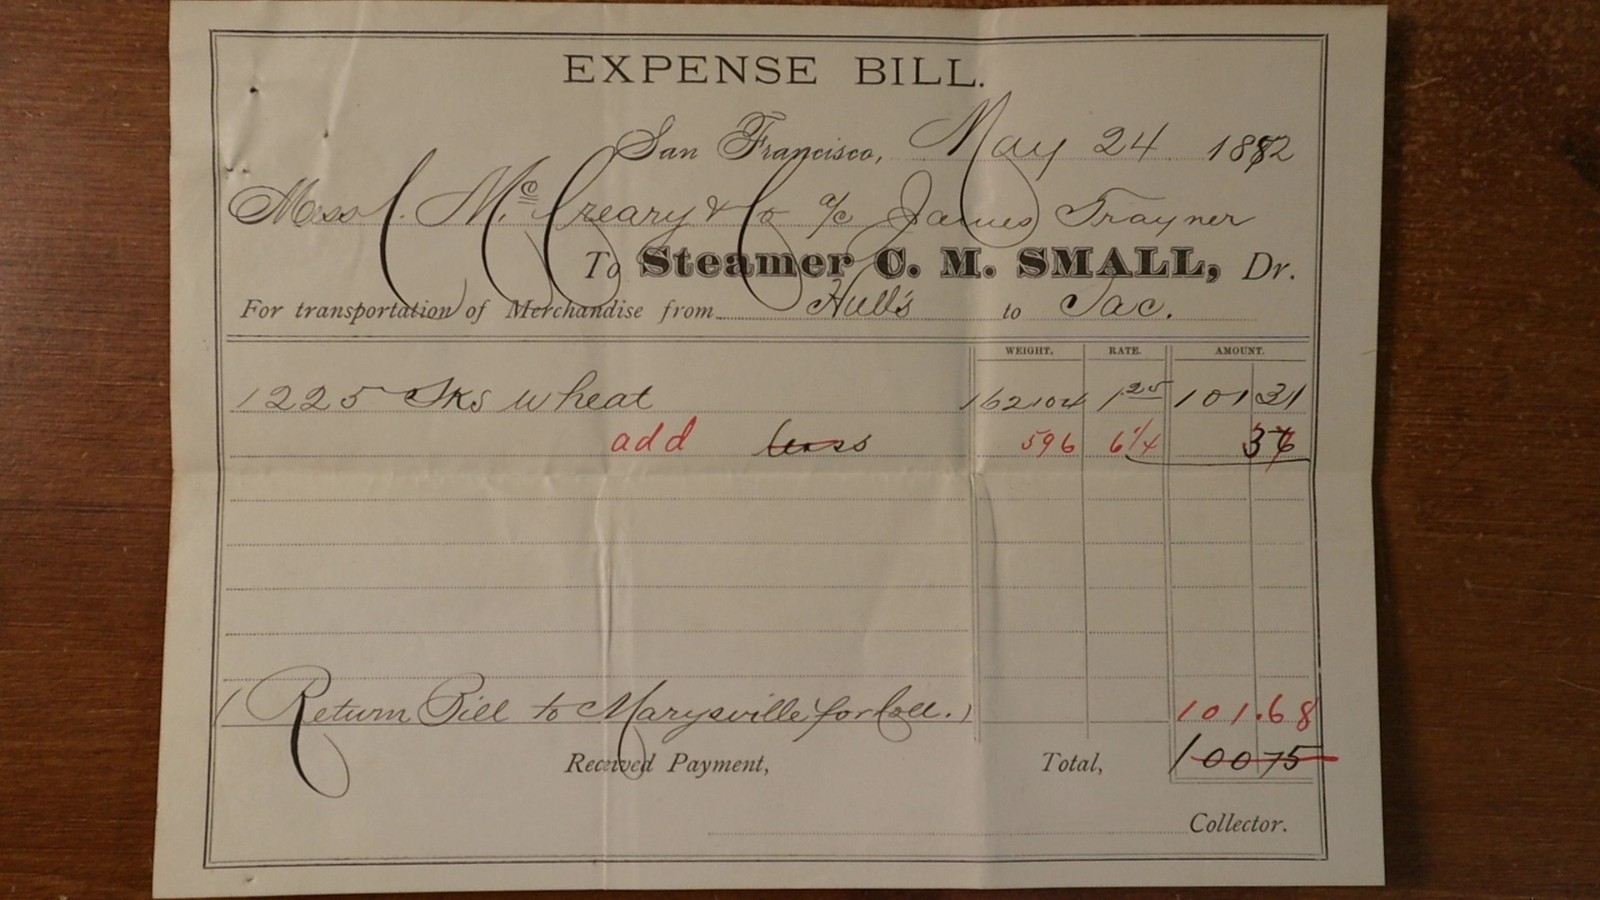 EXPENSE BILL.
San Francisco, May 24 1882
Mess. C. McCreary & Co a/c James Trayner
To Steamer C. M. SMALL, Dr.
For transportation of Merchandise from Hull's to Sac.
WEIGHT. RATE. AMOUNT.
1225 Sks wheat 162104 1.25 101 31
add less 596 6 1/4 37
(Return Bill to Marysville for Coll.) 101.68
Received Payment, Total, 10075
Collector.